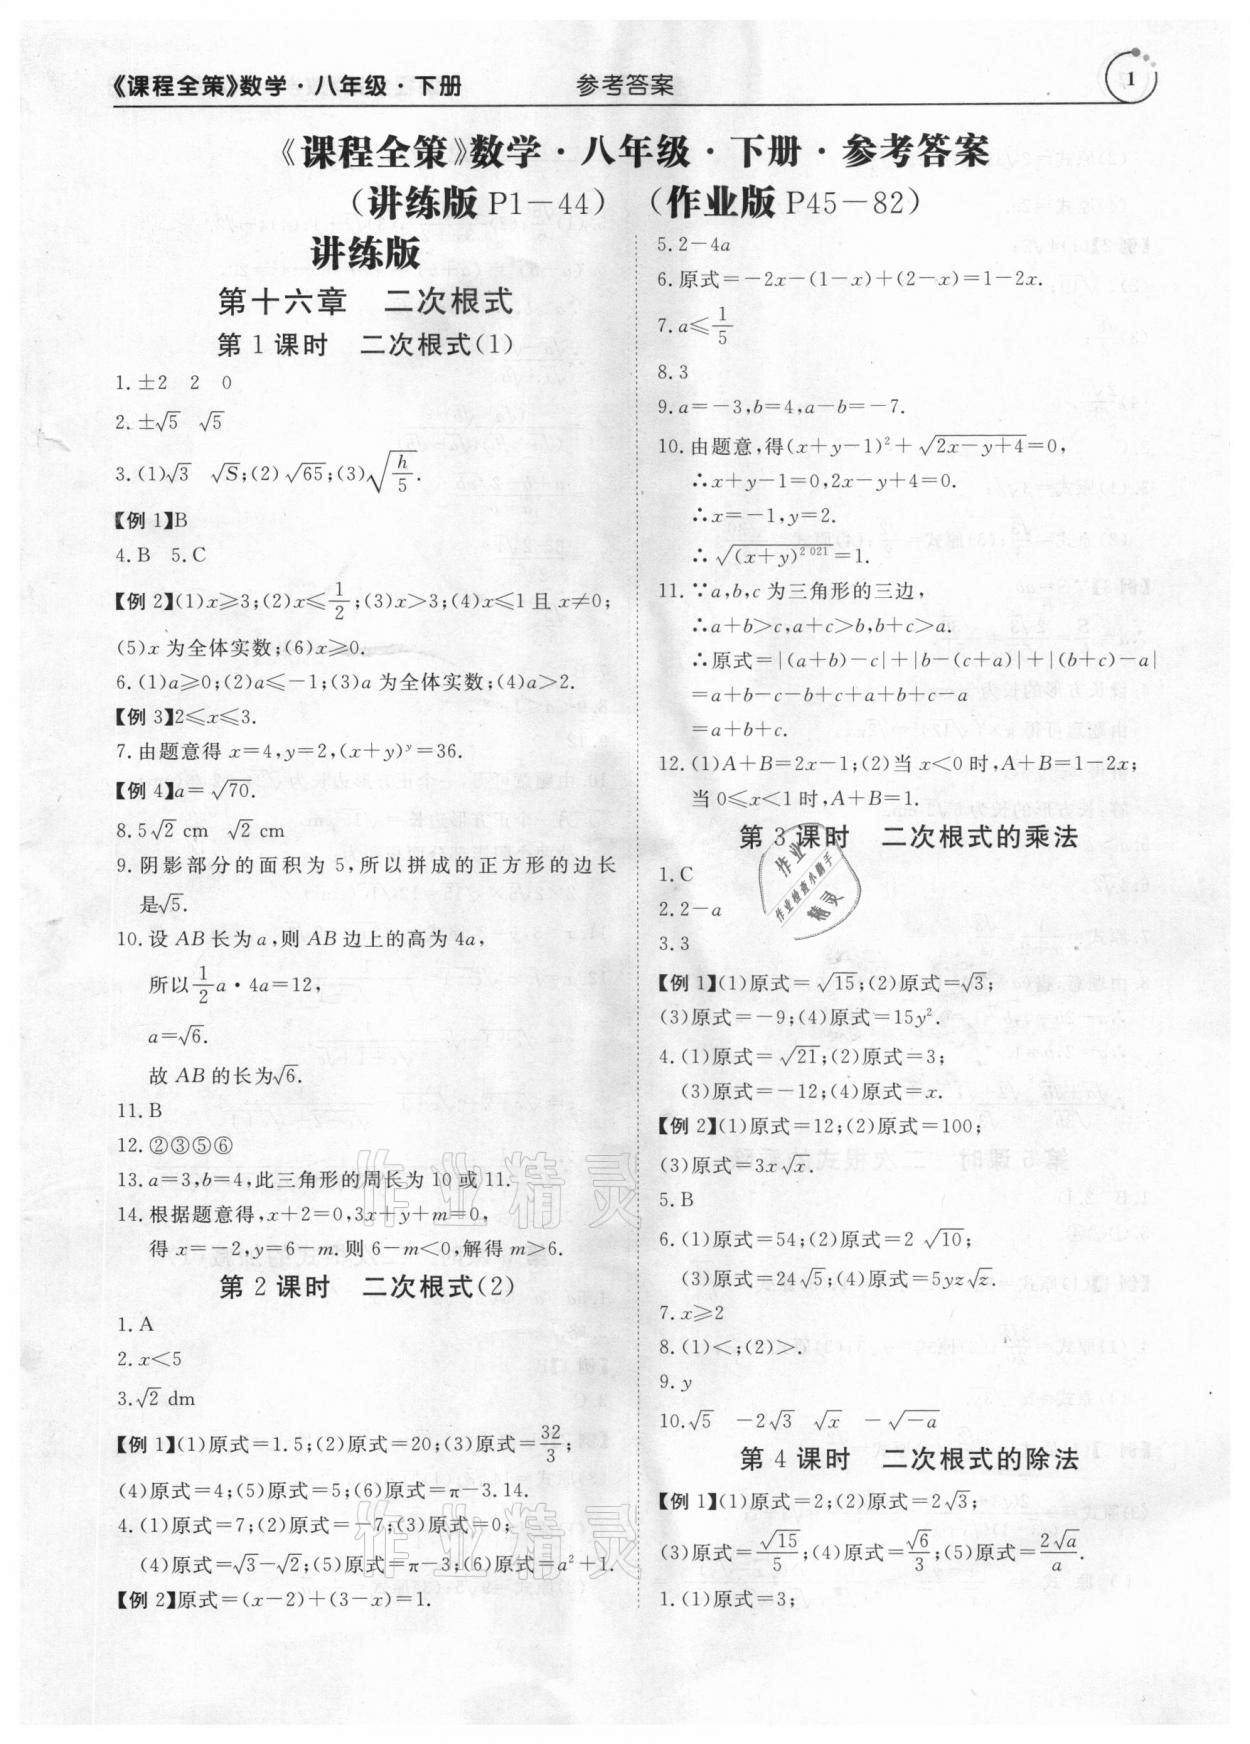 《课程全策》数学·八年级·下册 参考答案 1
《课程全策》数学·八年级·下册·参考答案
(讲练版 P1-44) (作业版 P45-82)
讲练版
第十六章 二次根式
第 1 课时 二次根式(1)
1. ±2 2 0
2. ±√5 √5
3. (1)√3 √S;(2)√65;(3)√(h/5).
【例 1】B
4. B 5. C
【例 2】(1)x≥3;(2)x≤1/2;(3)x>3;(4)x≤1 且 x≠0;
(5)x 为全体实数;(6)x≥0.
6. (1)a≥0;(2)a≤-1;(3)a 为全体实数;(4)a>2.
【例 3】2≤x≤3.
7. 由题意得 x=4,y=2,(x+y)^y=36.
【例 4】a=√70.
8. 5√2 cm √2 cm
9. 阴影部分的面积为 5,所以拼成的正方形的边长
是√5.
10. 设 AB 长为 a,则 AB 边上的高为 4a,
所以1/2a·4a=12,
a=√6.
故 AB 的长为√6.
11. B
12. ②③⑤⑥
13. a=3,b=4,此三角形的周长为 10 或 11.
14. 根据题意得,x+2=0,3x+y+m=0,
得 x=-2,y=6-m. 则 6-m<0,解得 m>6.
第 2 课时 二次根式(2)
1. A
2. x<5
3. √2 dm
【例 1】(1)原式=1.5;(2)原式=20;(3)原式=32/3;
(4)原式=4;(5)原式=5;(6)原式=π-3.14.
4. (1)原式=7;(2)原式=-7;(3)原式=0;
(4)原式=√3-√2;(5)原式=π-3;(6)原式=a²+1.
【例 2】原式=(x-2)+(3-x)=1.
5. 2-4a
6. 原式=-2x-(1-x)+(2-x)=1-2x.
7. a≤1/5
8. 3
9. a=-3,b=4,a-b=-7.
10. 由题意,得(x+y-1)²+√(2x-y+4)=0,
∴x+y-1=0,2x-y+4=0.
∴x=-1,y=2.
∴√((x+y)^2 021)=1.
11. ∵a,b,c 为三角形的三边,
∴a+b>c,a+c>b,b+c>a.
∴原式=|(a+b)-c|+|b-(c+a)|+|(b+c)-a|
=a+b-c-b+c+a+b+c-a
=a+b+c.
12. (1)A+B=2x-1;(2)当 x<0 时,A+B=1-2x;
当 0≤x<1 时,A+B=1.
第 3 课时 二次根式的乘法
1. C
2. 2-a
3. 3
【例 1】(1)原式=√15;(2)原式=√3;
(3)原式=-9;(4)原式=15y².
4. (1)原式=√21;(2)原式=3;
(3)原式=-12;(4)原式=x.
【例 2】(1)原式=12;(2)原式=100;
(3)原式=3x√x.
5. B
6. (1)原式=54;(2)原式=2√10;
(3)原式=24√5;(4)原式=5yz√z.
7. x≥2
8. (1)<;(2)>.
9. y
10. √5 -2√3 √x -√(-a)
第 4 课时 二次根式的除法
【例 1】(1)原式=2;(2)原式=2√3;
(3)原式=√15/5;(4)原式=√6/3;(5)原式=2√a/a.
1. (1)原式=3;
作业
作业检查小助手
精灵
作业精灵
作业精灵